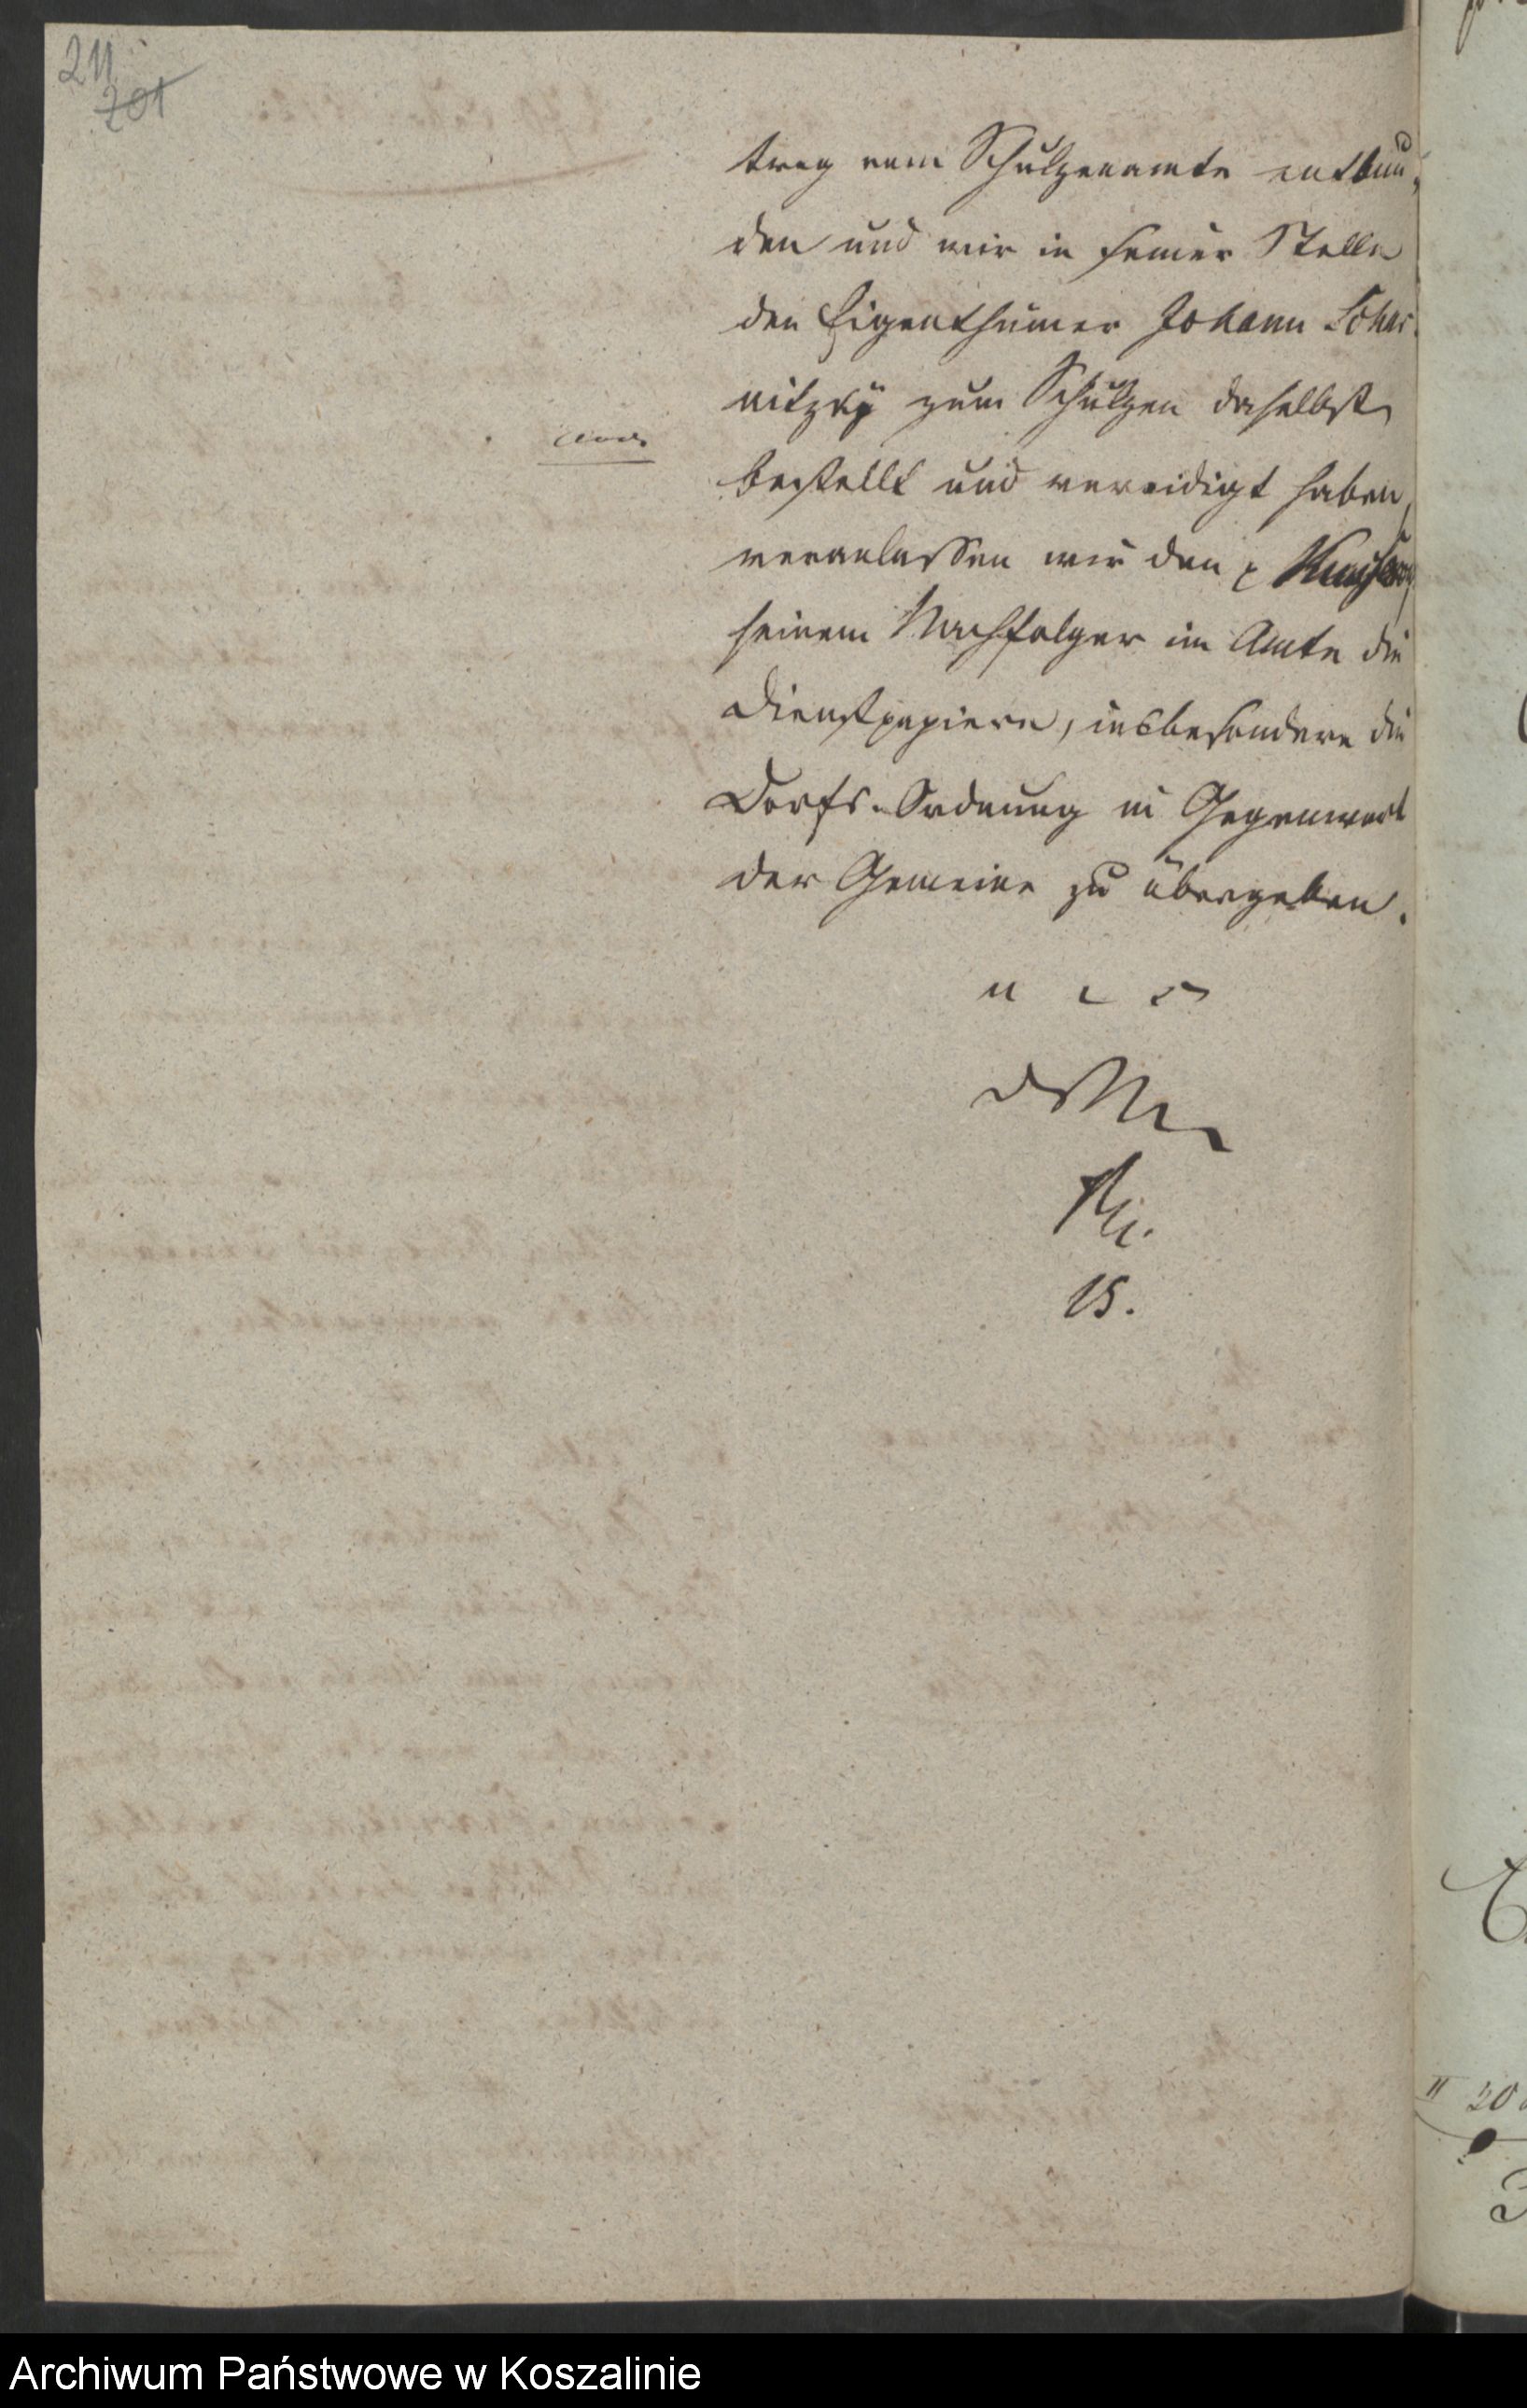 211
201
trag vom Schulzenamte entbun-
den und wir in seiner Stelle
den Eigenthümer Johann Schar-
nitzky zum Schulzen daselbst
bestellt und vereidigt haben,
veranlassen wir den
seinem Nachfolger im Amte die
Dienstpapiere, insbesondere die
Dorfs-Ordnung in Gegenwart
der Gemeine zu übergeben.
15.
II 20
Archiwum Państwowe w Koszalinie